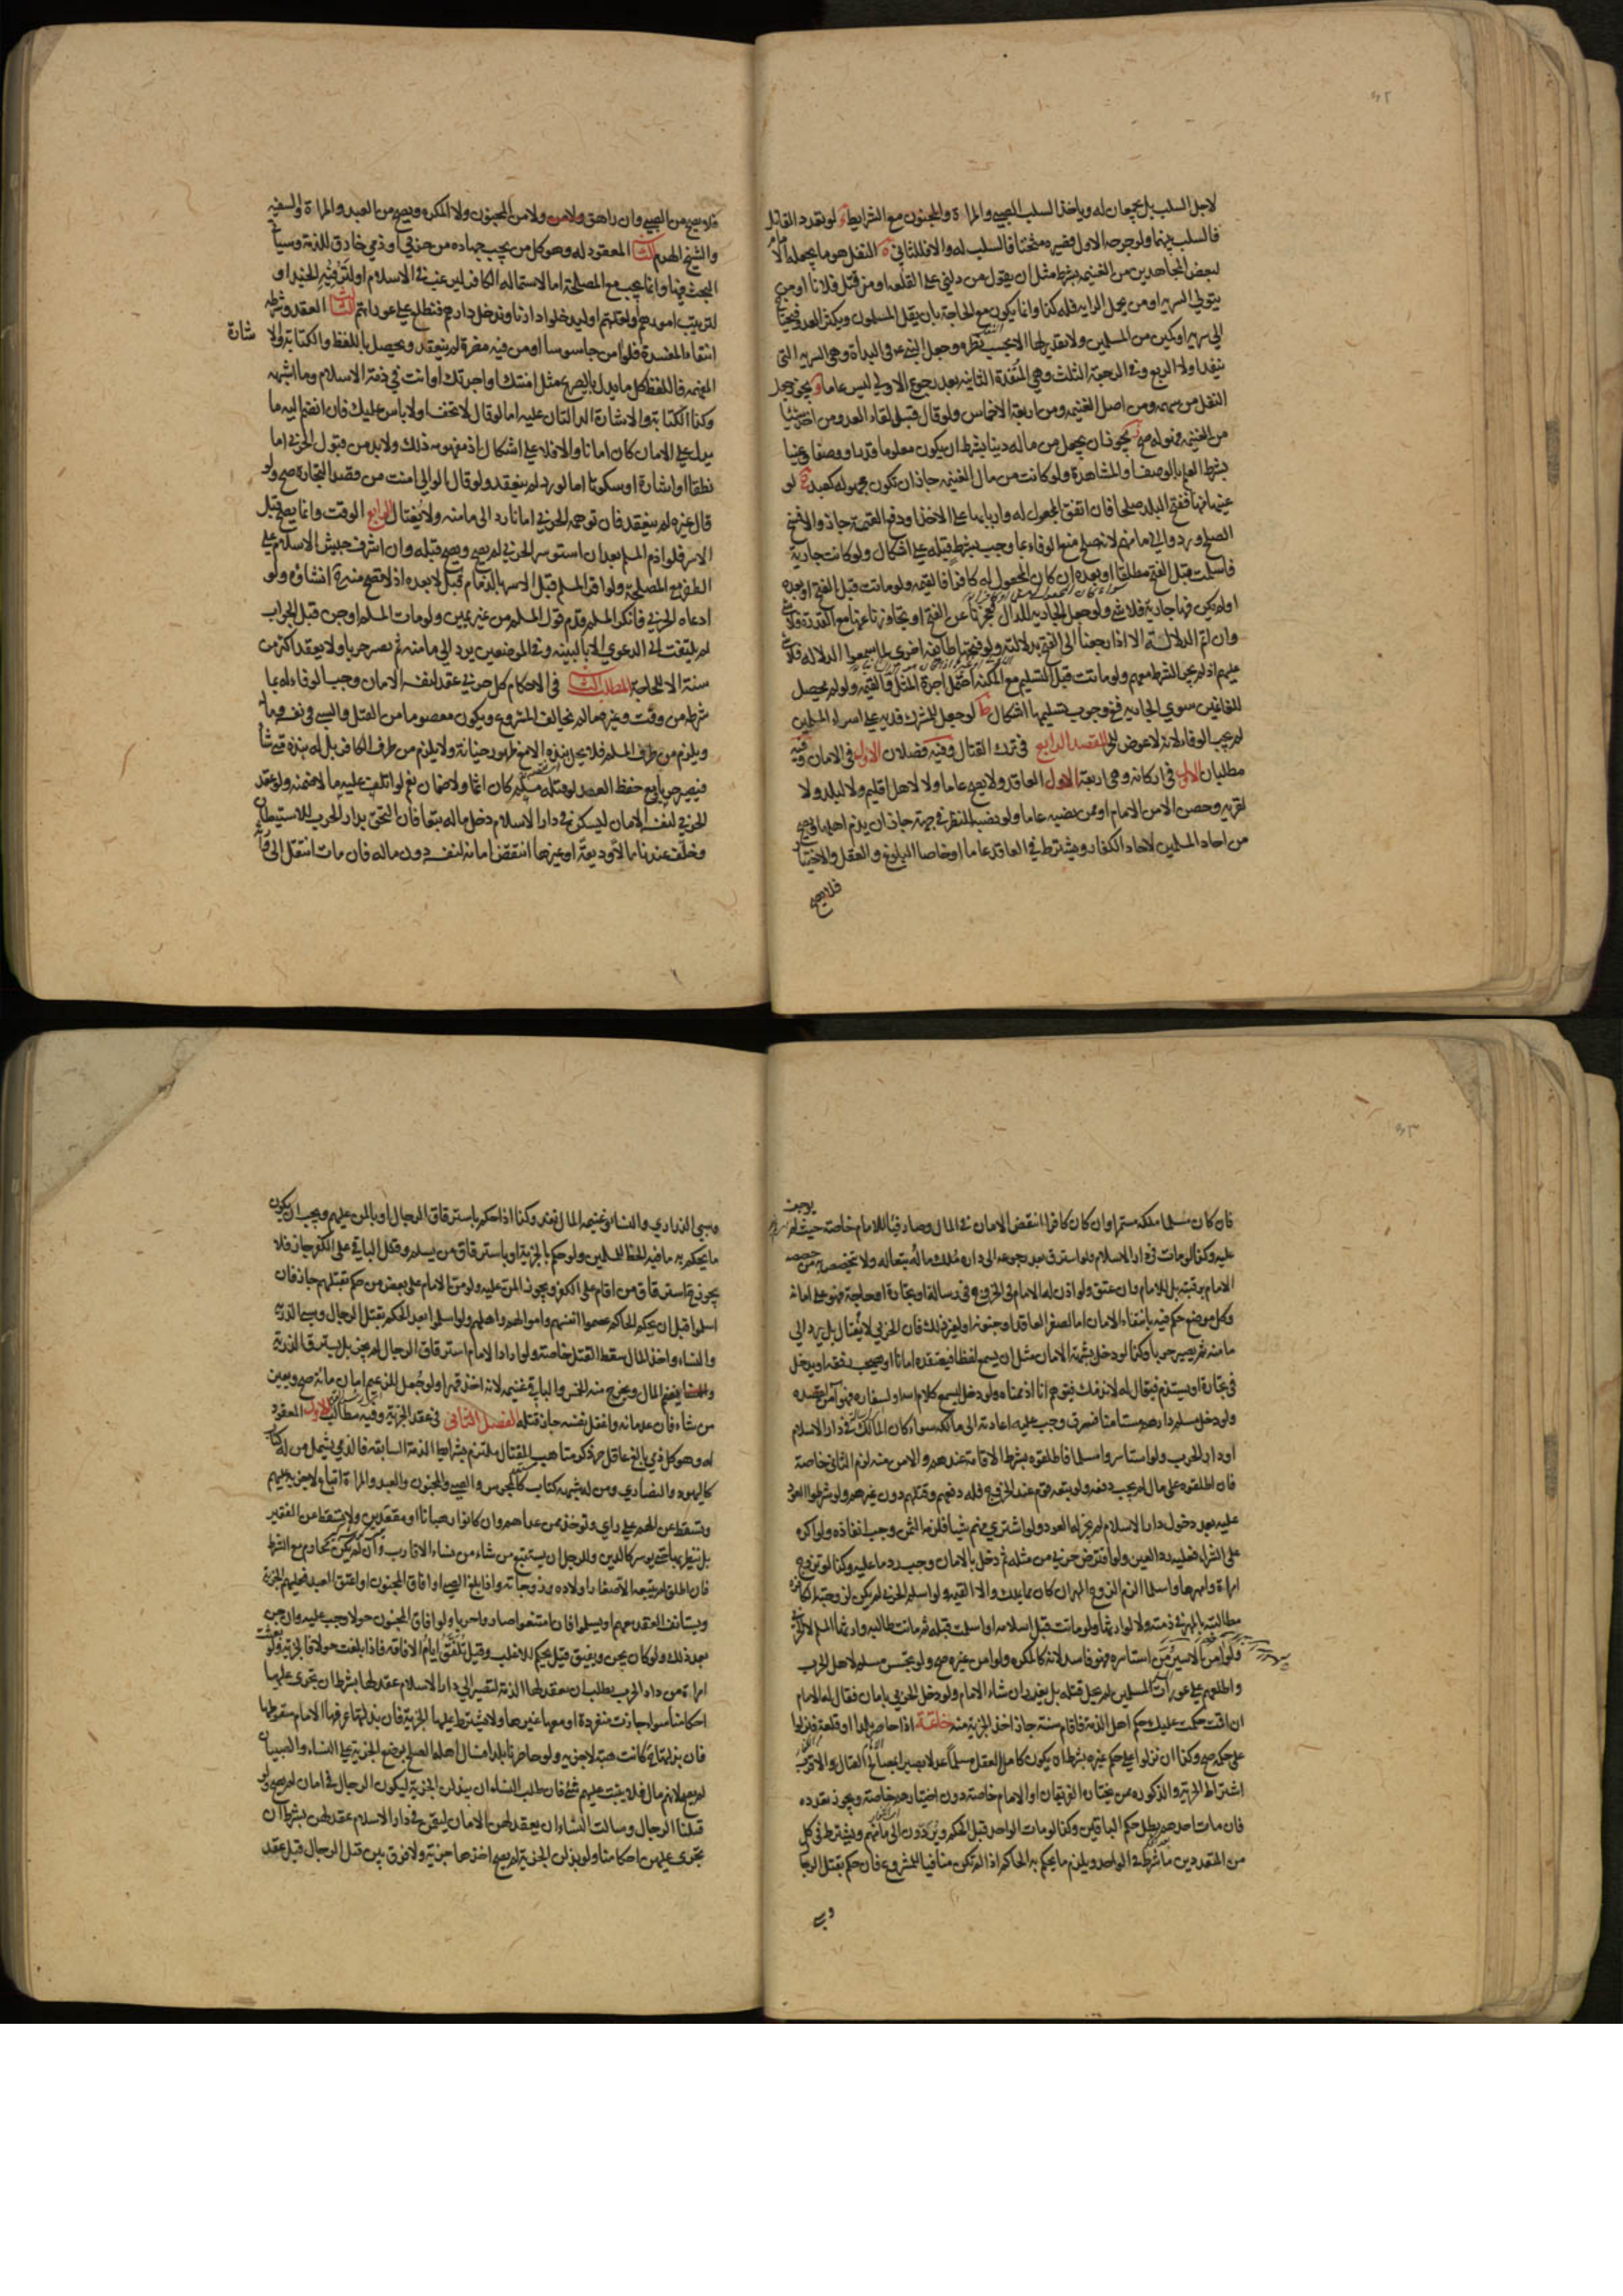 لاجل السلب بل يجعلان له وياخذ السلب الصبي والمراة والمجنون مع الشرايط لو تعدد القاتل
فالسلب بينهما ولو جرحه الاول فصيره مثخنا فالسلب له والا فللثاني النفل هو ما يجعله الامام
لبعض المجاهدين من الغنيمة بشرط مثل ان يقول من دلني على القلعة او من قتل فلانا او من
يتولى السرية او من يحمل الراية فله كذا وانما يكون مع الحاجة بان يقل المسلمون ويكثر العدو فيحتاج
الى سرية او كمين من المسلمين ولا تقدير لها الا بحسب نظره وجعل النبي في البداة وهي السرية التي
ينفذ اولا الربع وفي الرجعة الثلث وهي المنفذة الثانية بعد رجوع الاولى ليس عاما ويجوز جعل
النفل من سهمه ومن اصل الغنيمة ومن اربعة الاخماس ولو قال قبل لقاء العدو من اخذ شيئا
من الغنيمة فهو له صح يجوز ان يجعل من ماله دينا بشرط ان يكون معلوما قدرا ووصفا وعينا
بشرط العلم بالوصف او المشاهدة ولو كانت من مال الغنيمة جاز ان تكون مجهولة كعبد لو
عينها منها ففتح البلد صلحا فان اتفق المجعول له واربابها على الاخذ او دفع القيمة جاز والا فسخ
الصلح وردوا الى مامنهم لانه صلح منع الوفاء بما وجب بشرط قبله على اشكال ولو كانت جارية
فاسلمت قبل الفتح مطلقا او بعده ان كان المجعول له كافرا فالقيمة ولو ماتت قبل الفتح او بعده
او لم يكن فيها جارية فلا شيء ولو جعل الجارية للدال فعجزنا عن الفتح او تجاوزنا عنها مع القدرة فلا شيء
وان اتم الدلالة الا اذا رجعنا الى الفتح بدلالته ولو فتحها طائفة اخرى لما سمعوا الدلالة فلا شيء
عليهم اذ لم يجر الشرط معهم ولو ماتت قبل التسليم مع المكنة احتمل اجرة المثل والقيمة ولو لم يحصل
للغانمين سوى الجارية ففي وجوب تسليمها اشكال لو جعل للمشرك فدية على اسراء المسلمين
لم يجب الوفاء لانه لا عوض للحر المقصد الرابع في ترك القتال وفيه فصلان الاول في الامان وفيه
مطلبان الاول في اركانه وهي اربعة الاول العاقد ولا يصح عاما ولا لاهل اقليم ولا لبلد ولا
لقرية وحصن الا من الامام او ممن نصبه عاما ولو نصب للنظر في جهة جاز ان يذم اهلها ويصح
من احاد المسلمين لاحاد الكفار ويشترط في العاقد عاما او خاصا البلوغ والعقل والاختيار
فلا يصح
فلا يصح من الصبي وان راهق ولا من المجنون ولا المكره ويصح من العبد والمراة والسفيه
والشيخ الهرم الثاني المعقود له وهو كل من يجب جهاده من حربي او ذمي خارق للذمة وسياتي
البحث فيها وانما يجب مع المصلحة اما لاستمالة الكافر ليرغب في الاسلام او لترفيه الجند او
لترتيب امورهم او لقلتهم او ليدخلوا دارنا وندخل دارهم فنطلع على عوراتهم الثالث العقد وشرطه
انتفاء المفسدة فلو امن جاسوسا او من فيه مضرة لم ينعقد ويحصل باللفظ والكتابة والا
شارة
المفهمة فاللفظ كل ما يدل بالصريح مثل امنتك او اجرتك او انت في ذمة الاسلام وما اشبهه
وكذا الكتابة والاشارة الدالتان عليه اما لو قال لا تخف او لا باس عليك فان انضم اليه ما
يدل على الامان كان امانا والا فلا على اشكال اذ مفهومه ذلك ولا بد من قبول الحربي اما
نطقا او اشارة او سكوتا اما لو رد لم ينعقد ولو قال الوالي امنت من قصد التجارة صح ولو
قال غيره لم ينعقد فان توهمه الحربي امانا رد الى مامنه ولا يغتال الرابع الوقت وانما يصح قبل
الاسر فلو اذم المسلم بعد ان استوسر الحربي لم يصح ويصح قبله وان اشرف جيش الاسلام على
الظفر مع المصلحة ولو اقر المسلم قبل الاسر بالذمام قبل لا بعده اذ لا يصح منه انشاؤه ولو
ادعاه الحربي فانكر المسلم قدم قول المسلم من غير يمين ولو مات المسلم او جن قبل الجواب
لم يلتفت الى الدعوى الا بالبينة وفي الموضعين يرد الى مامنه ثم يصير حربا ولا يعقد اكثر من
سنة الا للحاجة المطلب الثاني في الاحكام كل حربي عقد لنفسه الامان وجب الوفاء له بما
شرطه من وقت وغيره ما لم يخالف المشروع ويكون معصوما من القتل والسبي في نفسه وماله
ويلزم من طرف المسلم فلا يحل نبذه الا مع ظهور خيانة ولا يلزم من طرف الكافر بل له نبذه متى شاء
فيصير حربا ومع حفظ العهد لو قتله مسلم كان اثما ولا ضمان نعم لو اتلف عليه مالا ضمنه ولو عقد
الحربي لنفسه الامان ليسكن في دار الاسلام دخل ماله تبعا فان التحق بدار الحرب للاستيطان
وخلف عندنا مالا وديعة او غيرها انتقض امانه لنفسه دون ماله فان مات انتقل الى وارثه
فان كان مسلما ملكه مستمرا وان كان كافرا انتقض الامان في المال وصار فيئا للامام خاصة حيث لم يوجف
عليه وكذا لو مات في دار الاسلام ولو استرق بعد رجوعه الى داره ملك ماله تبعا له ولا يتخصص من خصصه
الامام برقبته بل للامام وان عتق ولو اذن له الامام في الخروج في رسالة او تجارة او حاجة فهو على امانه
وكل موضع حكم فيه بانتفاء الامان اما لصغر العاقد او جنونه او لغير ذلك فان الحربي لا يغتال بل يرد الى
مامنه ثم يصير حربا وكذا لو دخل بشبهة الامان مثل ان يسمع لفظا فيعتقده امانا او يصحب رفقة او يدخل
في تجارة او يستذم فيقال له لا نذمك فيتوهم انا اذممناه ولو دخل ليسمع كلام الله او لسفارة فهو امن لقصده
ولو دخل مسلم دارهم مستامنا فسرق وجب عليه اعادته الى مالكه سواء كان المالك في دار الاسلام
او دار الحرب ولو استاسروا مسلما فاطلقوه بشرط الاقامة عندهم والامن منه لزم الثاني خاصة
فان اطلقوه على مال لم يجب دفعه ولو تبعه قوم عند الخروج فله دفعهم وقتلهم دون غيرهم ولو شرطوا العود
عليه بعد دخول دار الاسلام لم يجز له العود ولو اشترى منهم شيئا فلزمه الثمن وجب انفاذه ولو اكره
على الشراء فعليه رد العين ولو اقترض حربي من مثله ثم دخل بالامان وجب رد ما عليه وكذا لو تزوج
امراة وامهرها واسلما الزم الزوج المهر ان كان مما يملك والا القيمة ولو اسلم الحربي لم يكن لزوجته الكافرة
مطالبته بالمهر في ذمته ولا لوارثها ولو ماتت قبل اسلامه او اسلمت قبله ثم ماتت طالبه وارثها المسلم لا الحربي
ولو امن الاسير من استاسره فهو فاسد لانه كالمكره ولو امن غيره صح ولو تجسس مسلم لاهل الحرب
واطلعهم على عورات المسلمين لم يحل قتله بل يعزر ان شاء الامام ولو دخل الحربي بامان فقال له الامام
ان اقمت حكمت عليك حكم اهل الذمة فاقام سنة جاز اخذ الجزية منه خاتمة اذا حاصر بلدا او قلعة فنزلوا
على حكمه صح وكذا ان نزلوا على حكم غيره بشرط ان يكون كامل العقل مسلما عدلا بصيرا بمصالح القتال والاقرب
اشتراط الحرية والذكورة ممن يختاره الفريقان او الامام خاصة دون اختيارهم خاصة ويجوز تعدده
فان مات احدهم بطل حكم الباقين وكذا لو مات الواحد قبل الحكم ويردون الى مامنهم ويشترط في كل
من المتعددين ما شرط في الواحد ويلزم ما يحكم به الحاكم اذا لم يكن منافيا للمشروع فان حكم بقتل الرجال
وسبي
وسبي الذراري والنساء وغنيمة المال نفذ وكذا اذا حكم باسترقاق الرجال او بالمن عليهم ويجب ان يكون
ما يحكم به ما فيه الحظ للمسلمين ولو حكم بالجزية او باسترقاق من يسلم وقتل الباقي على الكفر جاز فلا
يجوز استرقاق من اقام على الكفر ويجوز المن عليه ولو من الامام على بعض من حكم بقتلهم جاز فان
اسلموا قبل ان يحكم الحاكم عصموا انفسهم واموالهم واهلهم ولو اسلموا بعد الحكم بقتل الرجال وسبي الذرية
والنساء واخذ المال سقط القتل خاصة ولو اراد الامام استرقاق الرجال لم يجز بل يسترق الذرية
والنساء يغنم المال ويخرج منه الخمس والباقي غنيمة لانه اخذ قهرا ولو جعل للزعيم امان مائة صح ويعين
من شاء فان عد مائة واغفل نفسه جاز قتله الفصل الثاني في عقد الجزية وفيه مطالب الاول المعقود
له وهو كل ذمي بالغ عاقل حر ذكر متاهب للقتال ملتزم بشرايط الذمة السابقة فالذمي يشمل من له كتاب
كاليهود والنصارى ومن له شبهة كتاب كالمجوس والصبي والمجنون والعبد والمراة اتباع لا جزية عليهم
وتسقط عن الهم على راي وتؤخذ ممن عداهم وان كانوا رهبانا او مقعدين ولا تسقط عن الفقير
بل ينظر بها حتى يوسر كالدين وللرجل ان يستتبع من شاء من نساء الاقارب وان لم يكن محارم مع الشرط
فان اطلق لم يتبعه الا صغار اولاده وزوجاته واذا بلغ الصبي او افاق المجنون او اعتق العبد فعليهم الجزية
ويستانف العقد معهم او يسلموا فان امتنعوا صاروا حربا ولو افاق المجنون حولا وجب عليه وان جن
بعد ذلك ولو كان يجن ويفيق قيل يحكم للاغلب وقيل تلفق ايام الافاقة فاذا بلغت حولا فالجزية ولو بعثت
امراة من دار الحرب يطلب ان يعقد لها الذمة لتصير الى دار الاسلام عقد لها بشرط ان يجري عليها
احكامنا سواء جاءت منفردة او معها غيرها ولا يشترط عليها الجزية فان بذلتها عرفها الامام سقوطها
فان بذلتها كانت هبة لا جزية ولو حاصرنا بلدا فسال اهله الصلح بوضع الجزية على النساء والصبيان
لم يصح لانهم مال فلا يثبت عليهم شيء فان طلب النساء ان يبذلن الجزية ليكون الرجال في امان لم يصح ولو
قتلنا الرجال وسالت النساء ان يعقد لهن الامان ليقمن في دار الاسلام عقد لهن بشرط ان
يجري عليهن احكامنا ولو بذلن الجزية لم يصح اخذها جزية ولا فرق بين قتل الرجال قبل عقد